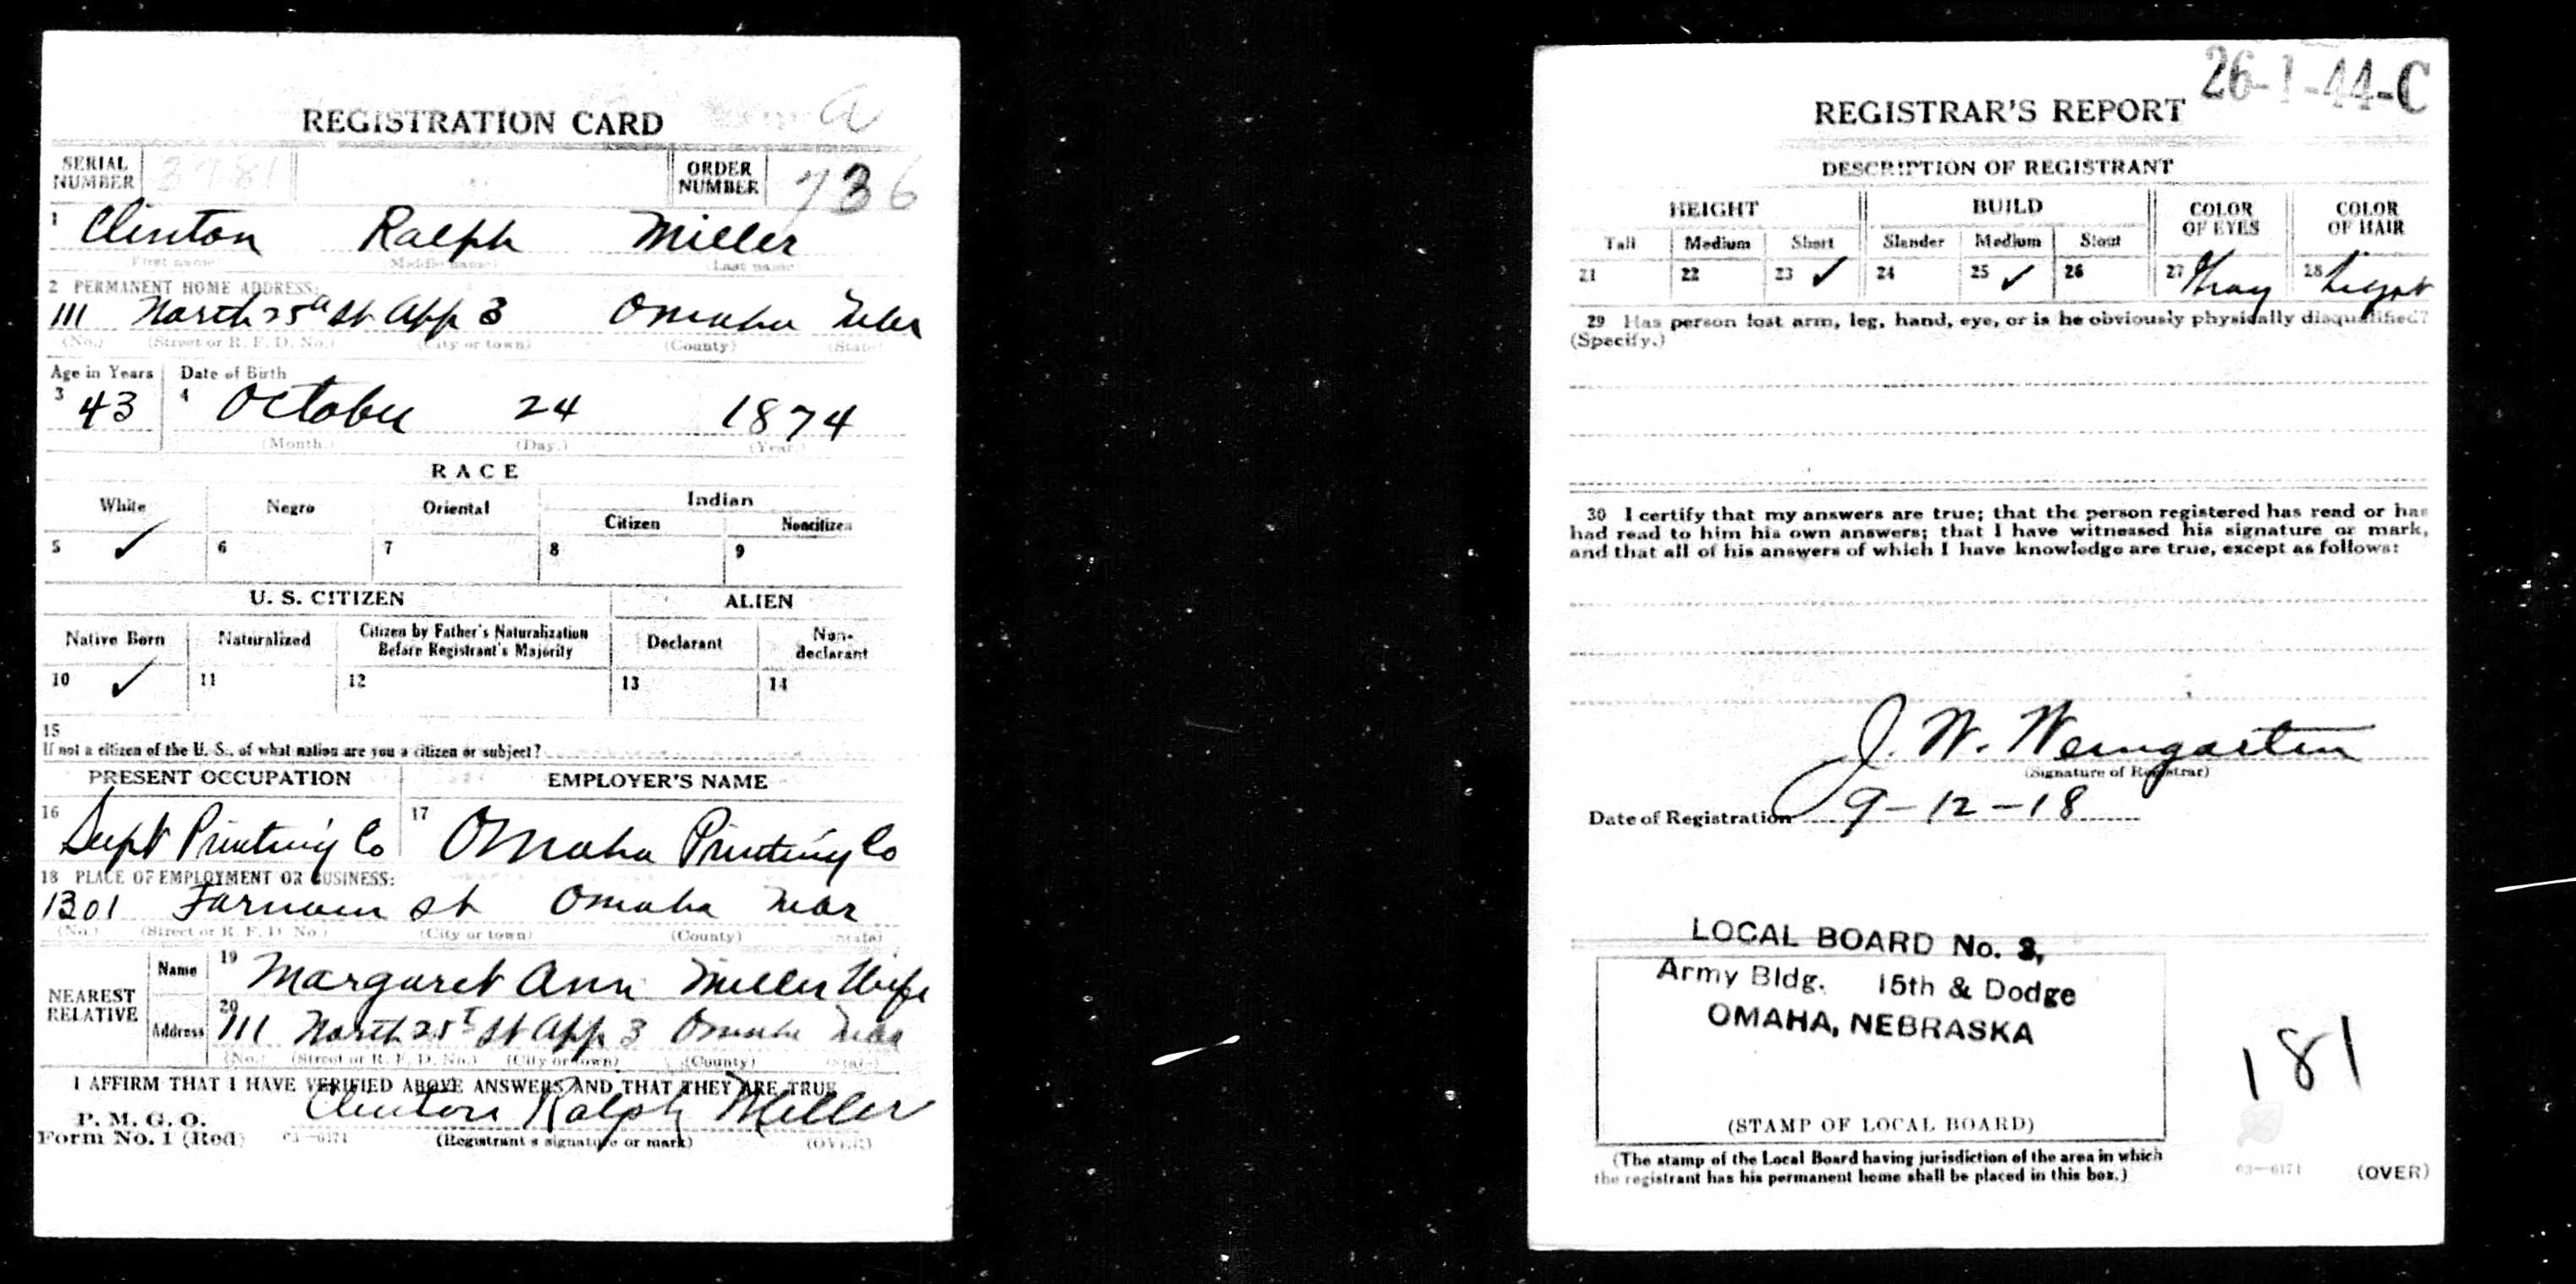 REGISTRATION CARD a
SERIAL NUMBER 3781 ORDER NUMBER 736
1 Clinton Ralph Miller
(First name) (Middle name) (Last name)
2 PERMANENT HOME ADDRESS:
111 North 25th St App 3 Omaha Nebr
(No.) (Street or R. F. D. No.) (City or town) (County) (State)
Age in Years Date of Birth
3 43 4 October 24 1874
(Month.) (Day.) (Year.)
RACE
White Negro Oriental Indian
Citizen Noncitizen
5 ✓ 6 7 8 9
U. S. CITIZEN ALIEN
Native Born Naturalized Citizen by Father's Naturalization Before Registrant's Majority Declarant Non-declarant
10 ✓ 11 12 13 14
15
If not a citizen of the U. S., of what nation are you a citizen or subject?
PRESENT OCCUPATION EMPLOYER'S NAME
16 Supt Printing Co 17 Omaha Printing Co
18 PLACE OF EMPLOYMENT OR BUSINESS:
1301 Farnam St Omaha Nebr
(No.) (Street or R. F. D. No.) (City or town) (County) (State)
NEAREST RELATIVE Name 19 Margaret Ann Miller Wife
Address 20 111 North 25 St App 3 Omaha Neb
(No.) (Street or R. F. D. No.) (City or town) (County) (State)
I AFFIRM THAT I HAVE VERIFIED ABOVE ANSWERS AND THAT THEY ARE TRUE
P. M. G. O.
Form No. 1 (Red) 03—6171 Clinton Ralph Miller
(Registrant's signature or mark) (OVER)
26-1-44-C
REGISTRAR'S REPORT
DESCRIPTION OF REGISTRANT
HEIGHT BUILD COLOR OF EYES COLOR OF HAIR
Tall Medium Short Slender Medium Stout
21 22 23 ✓ 24 25 ✓ 26 27 Gray 28 Light
29 Has person lost arm, leg, hand, eye, or is he obviously physically disqualified?
(Specify.)
30 I certify that my answers are true; that the person registered has read or has
had read to him his own answers; that I have witnessed his signature or mark,
and that all of his answers of which I have knowledge are true, except as follows:
J. W. Weingarten
(Signature of Registrar)
Date of Registration 9-12-18
LOCAL BOARD No. 3,
Army Bldg. 15th & Dodge
OMAHA, NEBRASKA
181
(STAMP OF LOCAL BOARD)
(The stamp of the Local Board having jurisdiction of the area in which
the registrant has his permanent home shall be placed in this box.)
03—6171 (OVER)